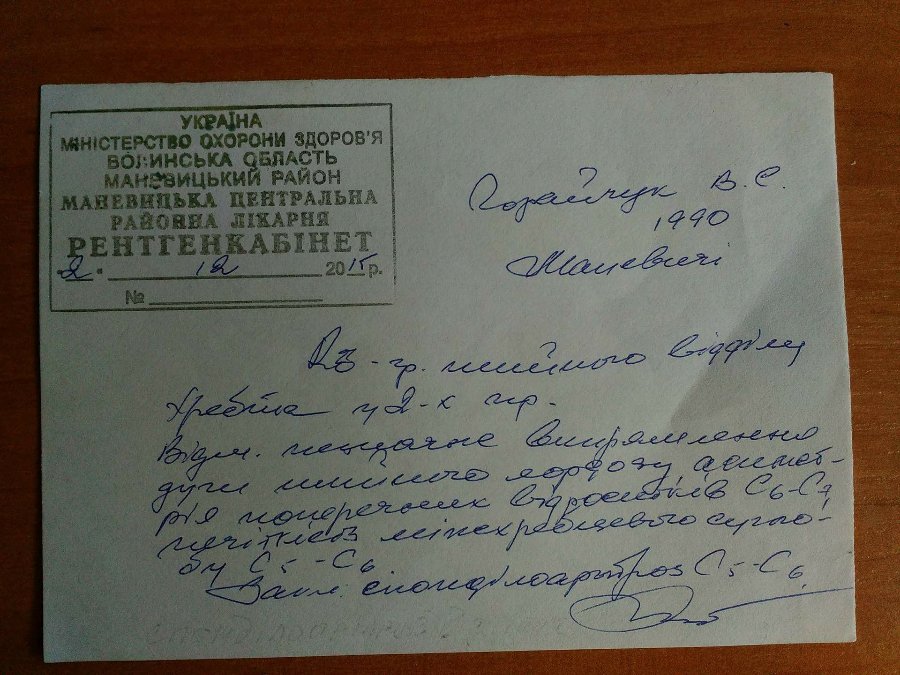 УКРАЇНА
МІНІСТЕРСТВО ОХОРОНИ ЗДОРОВ'Я
ВОЛИНСЬКА ОБЛАСТЬ
МАНЕВИЦЬКИЙ РАЙОН
МАНЕВИЦЬКА ЦЕНТРАЛЬНА
РАЙОННА ЛІКАРНЯ
РЕНТГЕНКАБІНЕТ
2 12 2015 р.
№
В. С.
1990
Маневичі
Rб-гр. шийного відділу
хребта у 2-х пр.
Відм. незначне випрямлення
дуги шийного лордозу, асимет-
рія поперечних відростків C6-C7
нечіткість міжхребцевого сугло-
бу C5-C6
Закл. спонділоартроз C5-C6